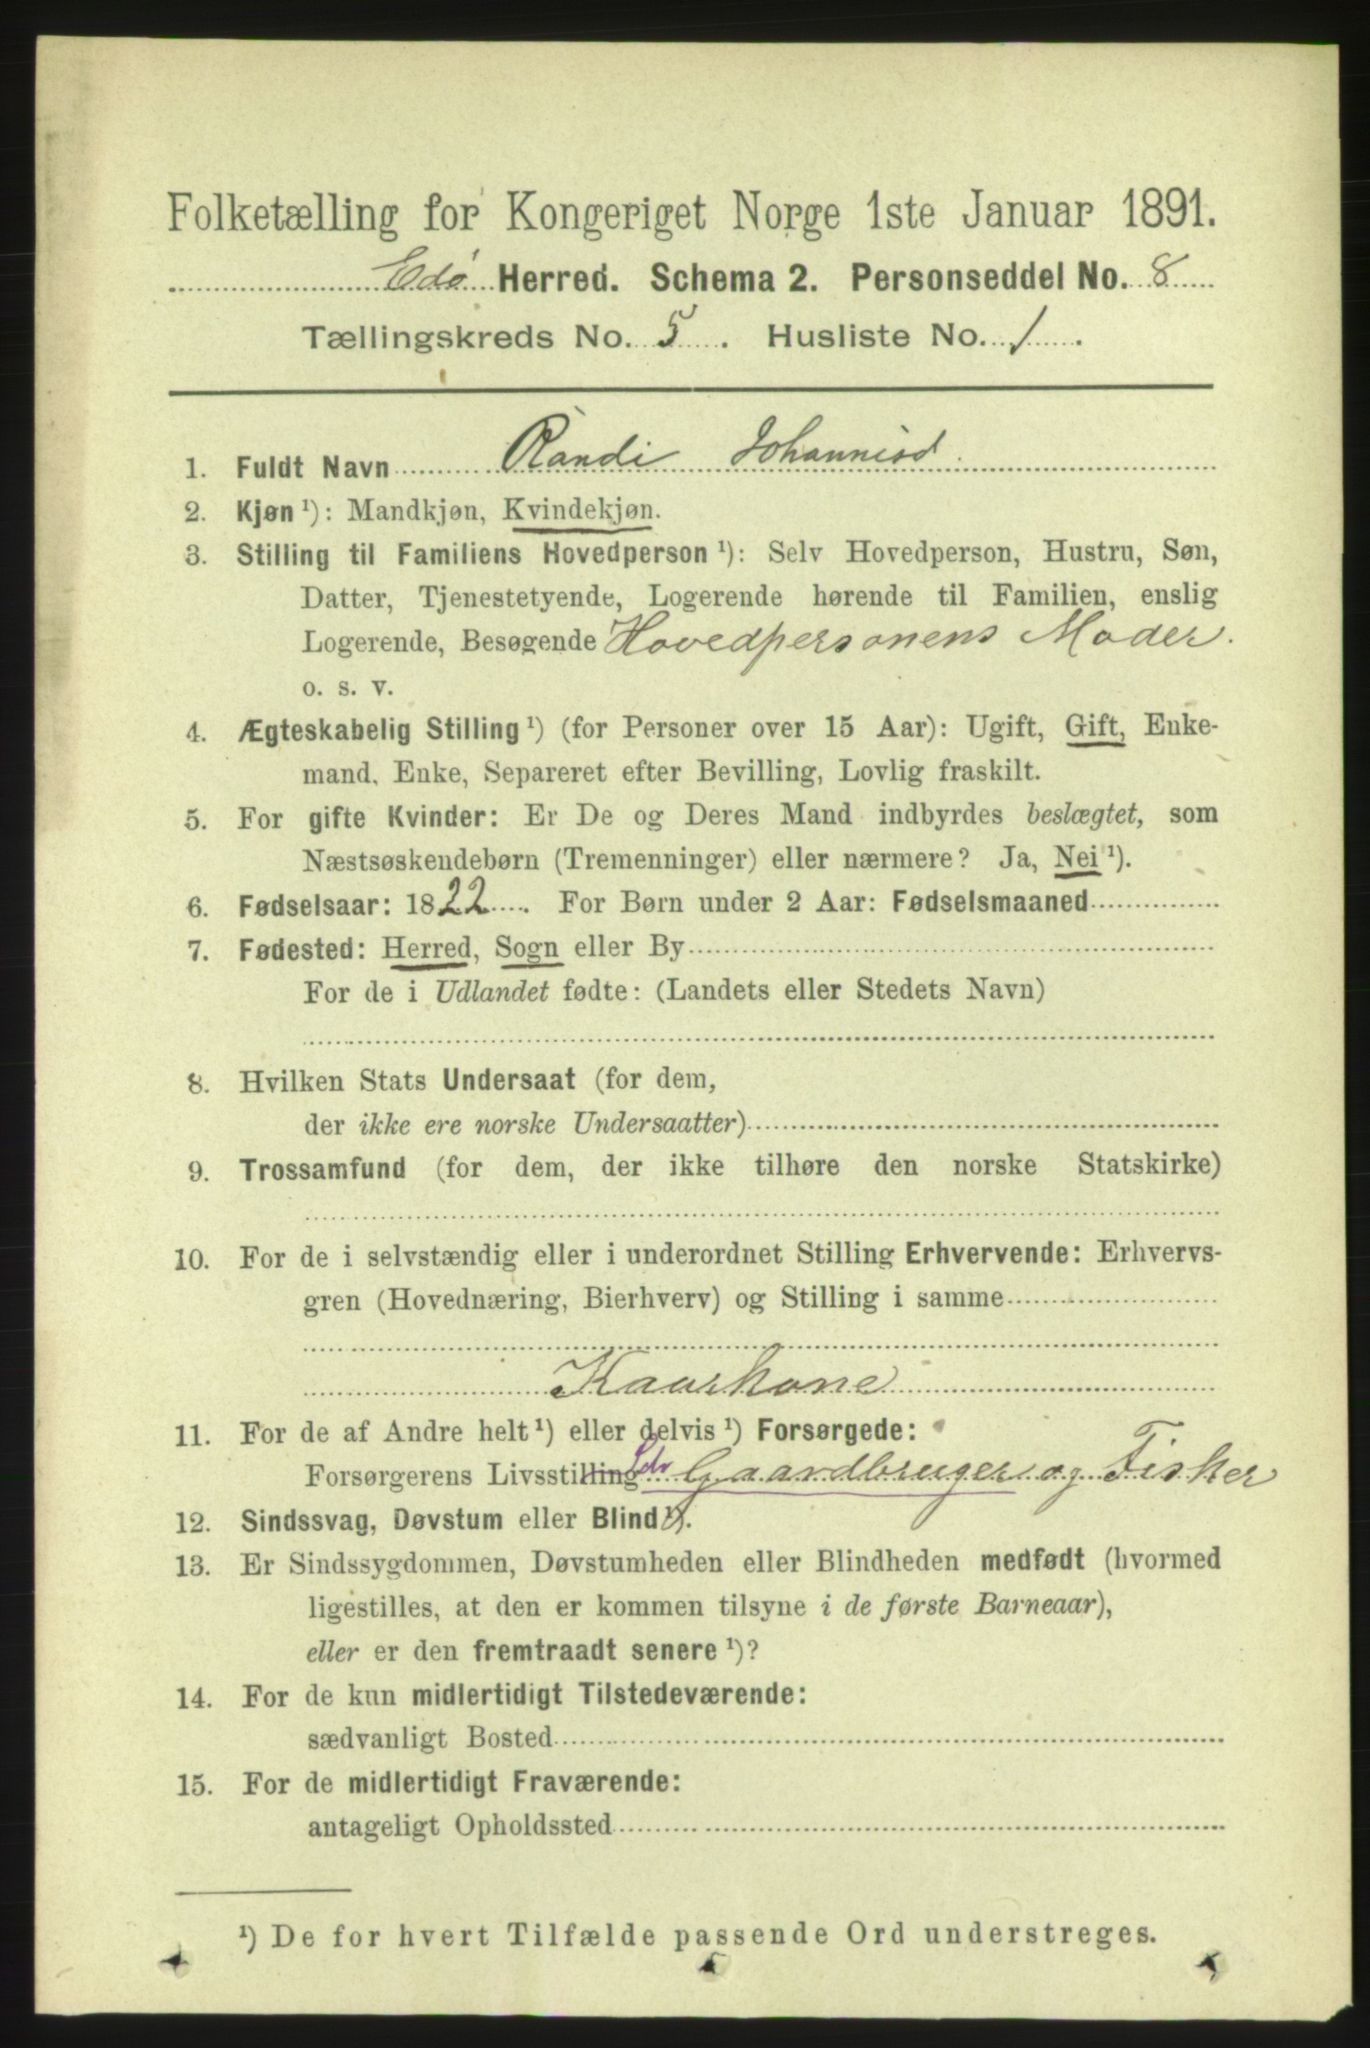 Folketælling for Kongeriget Norge 1ste Januar 1891.
Edø Herred. Schema 2. Personseddel No. 8
Tællingskreds No. 5. Husliste No. 1.
1. Fuldt Navn Randi Johannisd.
2. Kjøn ¹): Mandkjøn, Kvindekjøn.
3. Stilling til Familiens Hovedperson ¹): Selv Hovedperson, Hustru, Søn,
Datter, Tjenestetyende, Logerende hørende til Familien, enslig
Logerende, Besøgende Hovedpersonens Moder.
o. s. v.
4. Ægteskabelig Stilling ¹) (for Personer over 15 Aar): Ugift, Gift, Enke-
mand, Enke, Separeret efter Bevilling, Lovlig fraskilt.
5. For gifte Kvinder: Er De og Deres Mand indbyrdes beslægtet, som
Næstsøskendebørn (Tremenninger) eller nærmere? Ja, Nei ¹).
6. Fødselsaar: 1822. For Børn under 2 Aar: Fødselsmaaned
7. Fødested: Herred, Sogn eller By
For de i Udlandet fødte: (Landets eller Stedets Navn)
8. Hvilken Stats Undersaat (for dem,
der ikke ere norske Undersaatter)
9. Trossamfund (for dem, der ikke tilhøre den norske Statskirke)
10. For de i selvstændig eller i underordnet Stilling Erhvervende: Erhvervs-
gren (Hovednæring, Bierhverv) og Stilling i samme
Kaarkone
11. For de af Andre helt ¹) eller delvis ¹) Forsørgede:
Forsørgerens Livsstilling Gaardbruger og Fisker
12. Sindssvag, Døvstum eller Blind ¹).
13. Er Sindssygdommen, Døvstumheden eller Blindheden medfødt (hvormed
ligestilles, at den er kommen tilsyne i de første Barneaar),
eller er den fremtraadt senere ¹)?
14. For de kun midlertidigt Tilstedeværende:
sædvanligt Bosted
15. For de midlertidigt Fraværende:
antageligt Opholdssted
¹) De for hvert Tilfælde passende Ord understreges.